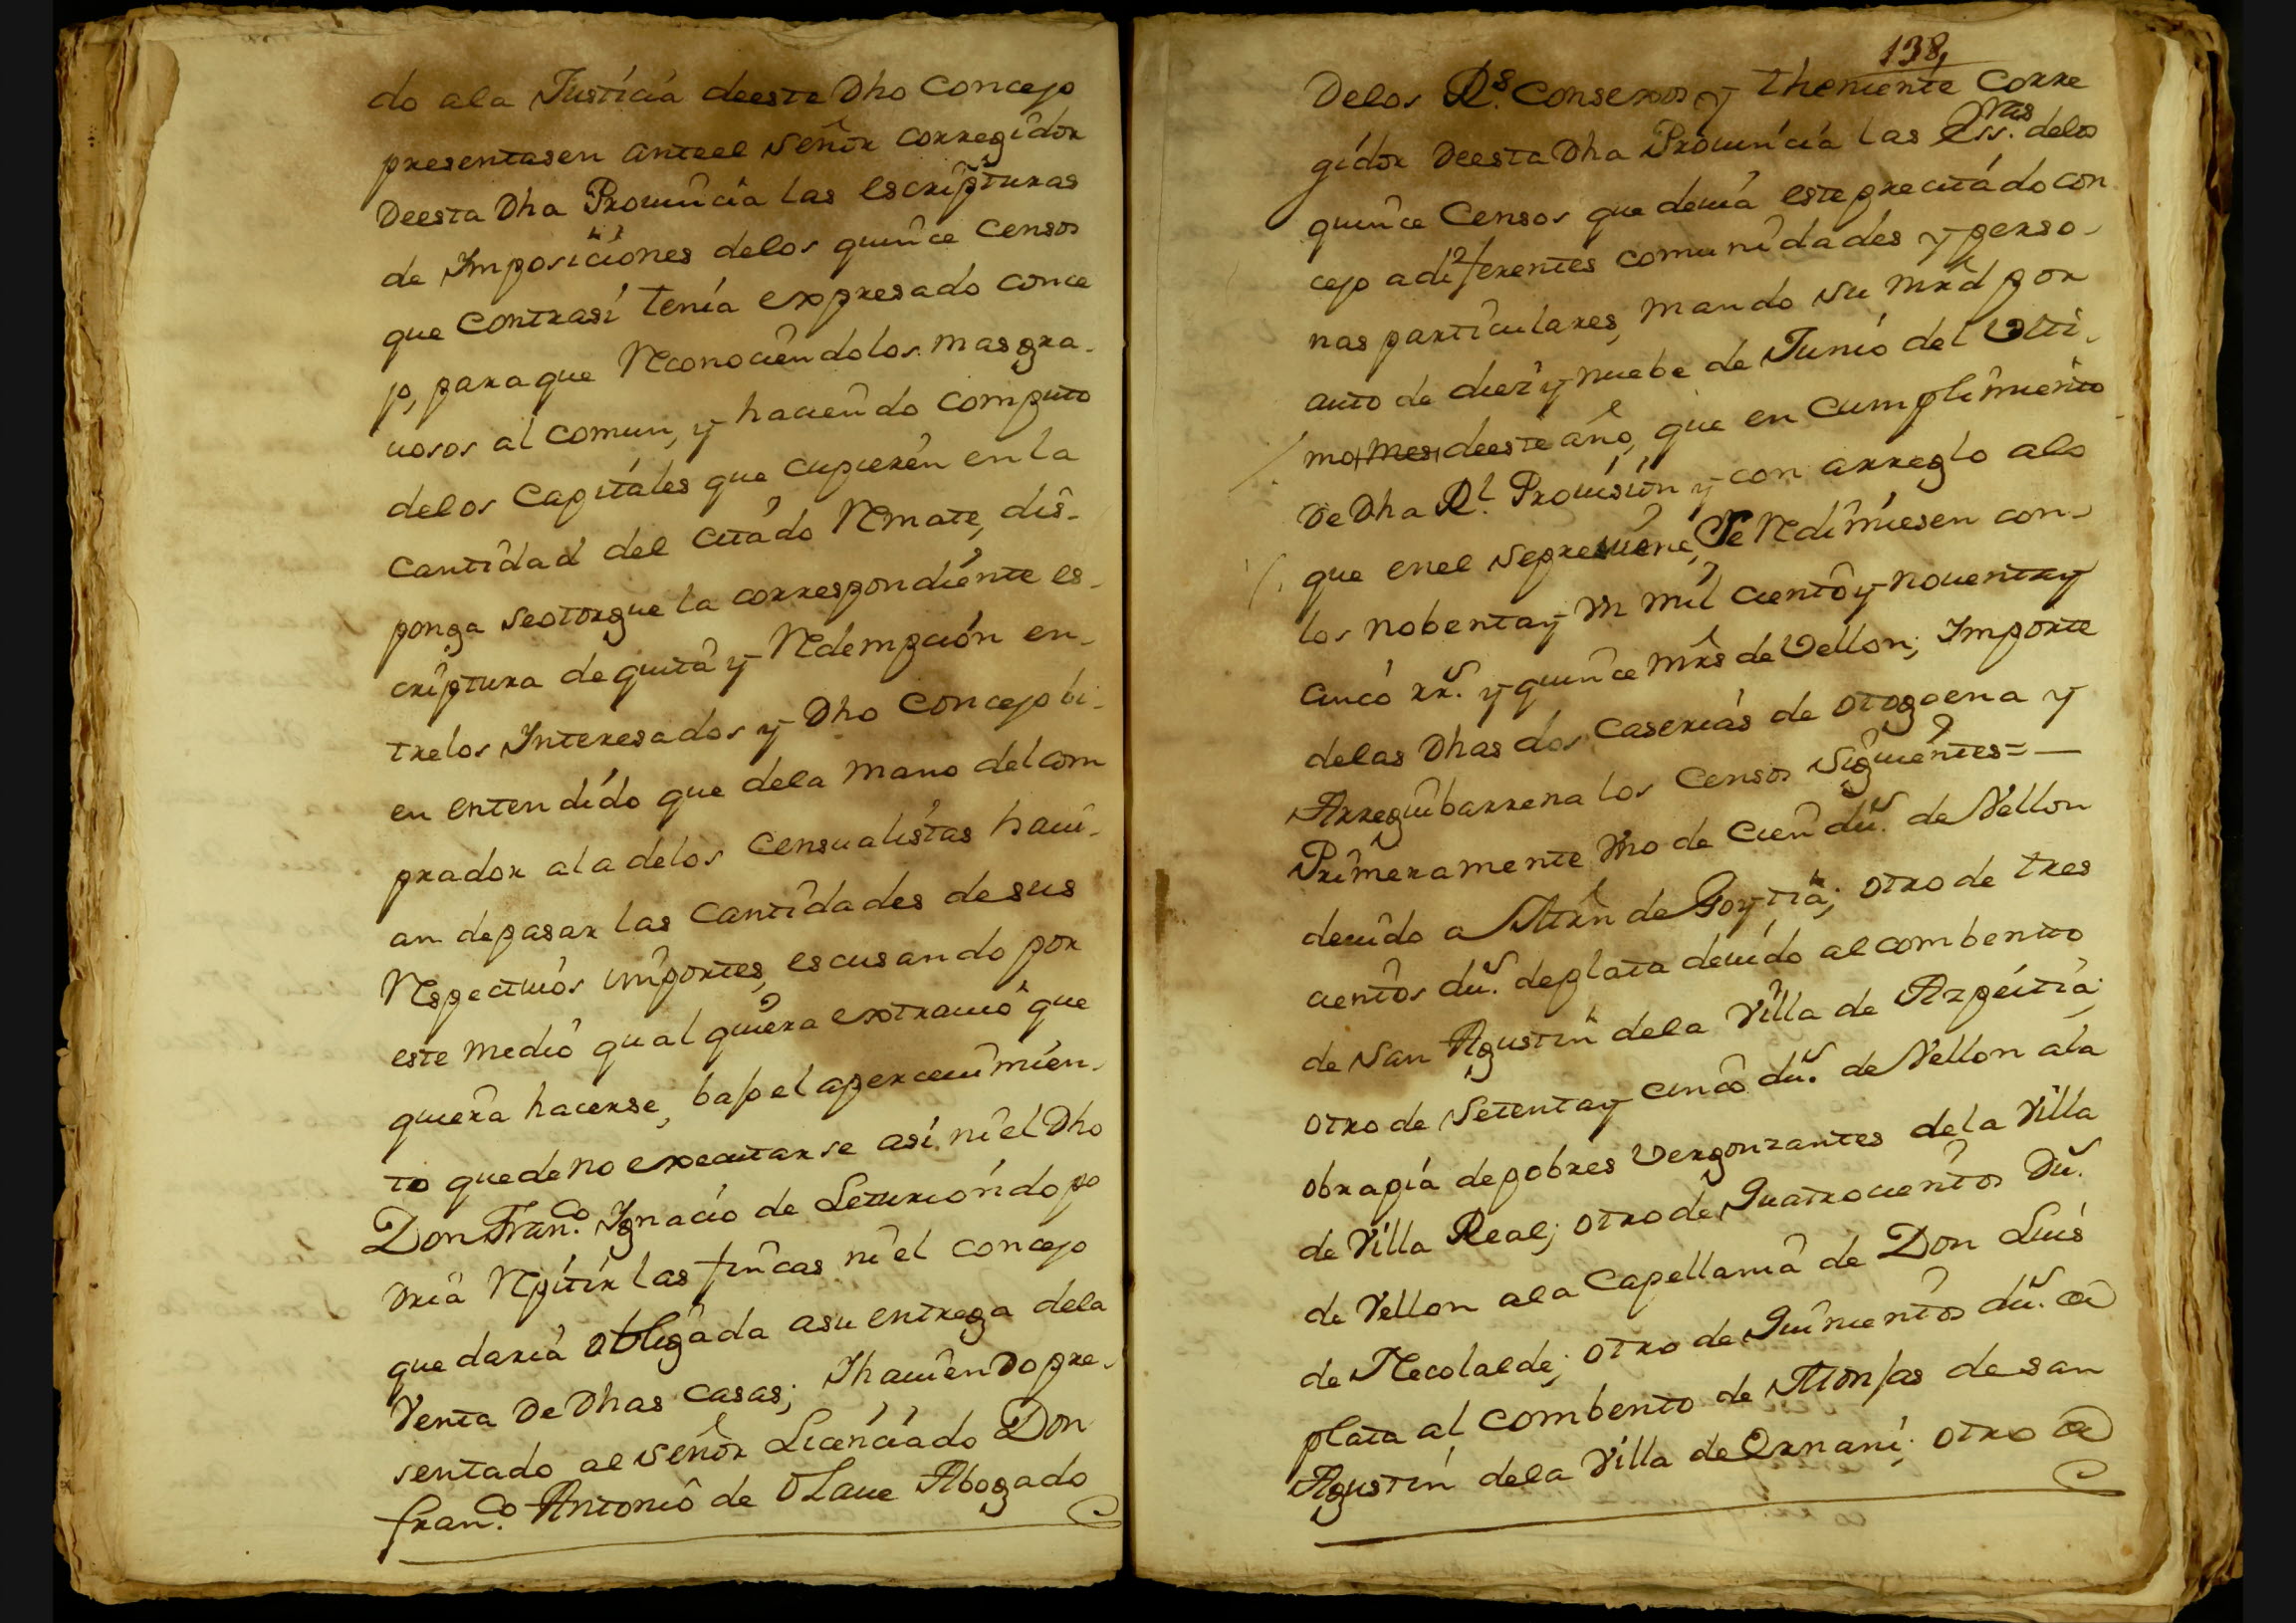 do ala Justicia deesta Dho Concejo
presentasen anteel Señor Corregidor
Deesta Dha Provincia las escripturas
de Imposiciones delos quince Censos
que Contrasi tenia expresado conce
jo, paraque Reconociendolos mas gra-
uosos al Comun, y haciendo Computo
delos Capitales que cupieren en la
Cantidad del citado Remate, dis-
ponga seotorgue la correspondiente es-
criptura de quita y Redempcion en-
trelos Interesados y Dho Concejo bi-
en entendido que dela mano del com
prador ala delos Censualistas haui-
an depasar las Cantidades de sus
Respectiuos importes, escusando por
este medio qual quiera extrauio que
quiera hacerse, bajo el aperceuimien-
to quede no executarse asi ni el Dho
Don Fran.co Ignacio de Leturiondo po
dria Repitir las fincas ni el Concejo
que daria obligada asu entrega dela
Venta De Dhas Casas; Ihauiendo pre-
sentado al señor Licenciado Don
fran.co Antonio de Olaue Abogado
138,
Delos R.s Consexos y theniente Corre
gidor Deesta Dha Prouincia las Ess.ras delos
quince Censos que deuia este precitado con
cejo adiferentes comunidades y perso-
nas particulares, mando su mrd por
auto de diez y nuebe de Junio del Ulti-
mo, mes, deeste año, que en Cumplimiento
De Dha R.l Prouision y con arreglo alo
que enel sepreuiene, Se Redimiesen con-
los nobentay Un mil ciento y nouentay
cinco rr.s y quince mrs de Vellon; Importe
delas Dhas dos Caserias de otogoena y
Arreguibarrena los Censos Siguientes= —
Primeramente Uno de Cien du.s de Vellon
deuido a Mrn de Goytia; otro de tres
cientos du.s deplata deuido al combento
de San Agustin dela Villa de Azpeitia;
otro de Setentay cinco du.s de Vellon ala
obrapia depobres Vergonzantes dela Villa
de Villa Real; otro de Quatrocientos Du.s
de Vellon ala Capellania de Don Luis
de Necolalde; otro de Quinientos du.s de
plata al Combento de Monjas de san
Agustin dela Villa de Ernani; otro de